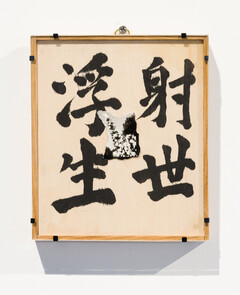 射世
浮生